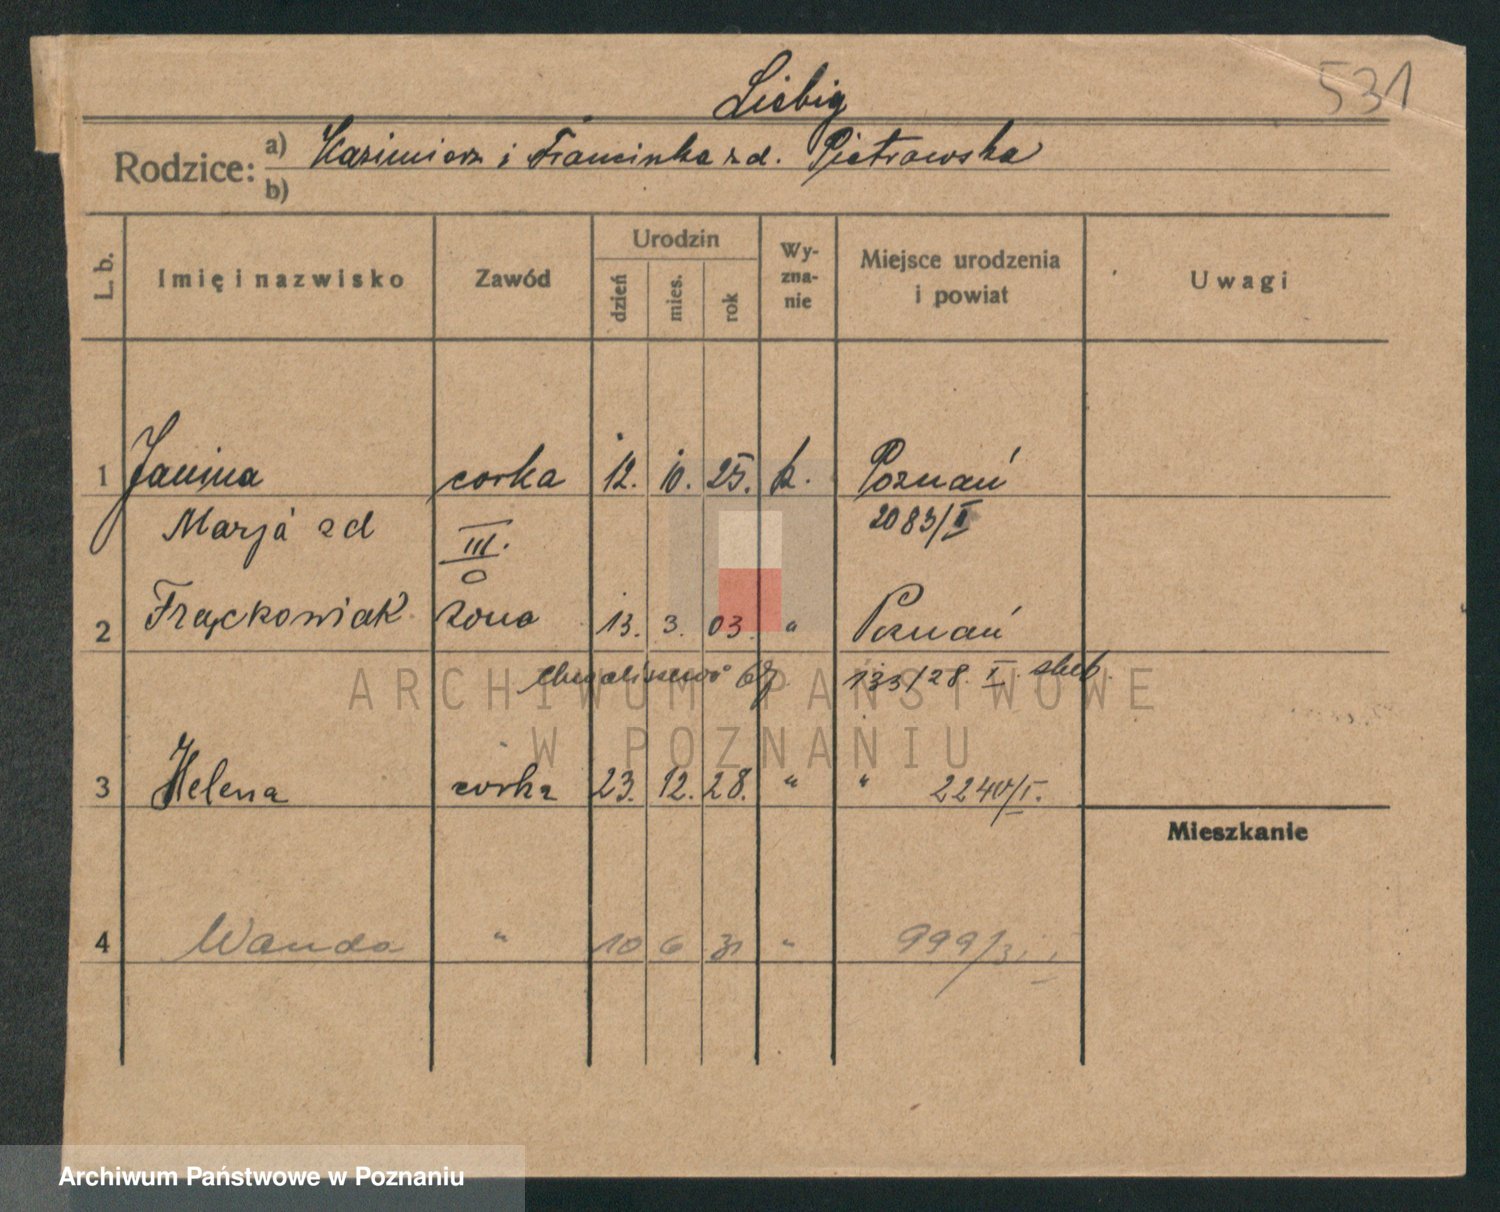 531
Liebig
Rodzice:
a) Kazimierz i Franciszka z d. Pietrowska
b)
L. b.
Imię i nazwisko
Zawód
Urodzin
dzień
mies.
rok
Wy-
zna-
nie
Miejsce urodzenia
i powiat
Uwagi
1 Janina corka 12. 10. 25. k. Poznań
Marja z d III. 2083/I
0
2 Frąckowiak żona 13. 3. 03. " Poznań
69 133/28. I.
3 Helena corka 23. 12. 28. " " 2240/I.
Mieszkanie
4 Wanda " 10 6 31 " 999/31 I
ARCHIWUM PAŃSTWOWE
W POZNANIU
Archiwum Państwowe w Poznaniu